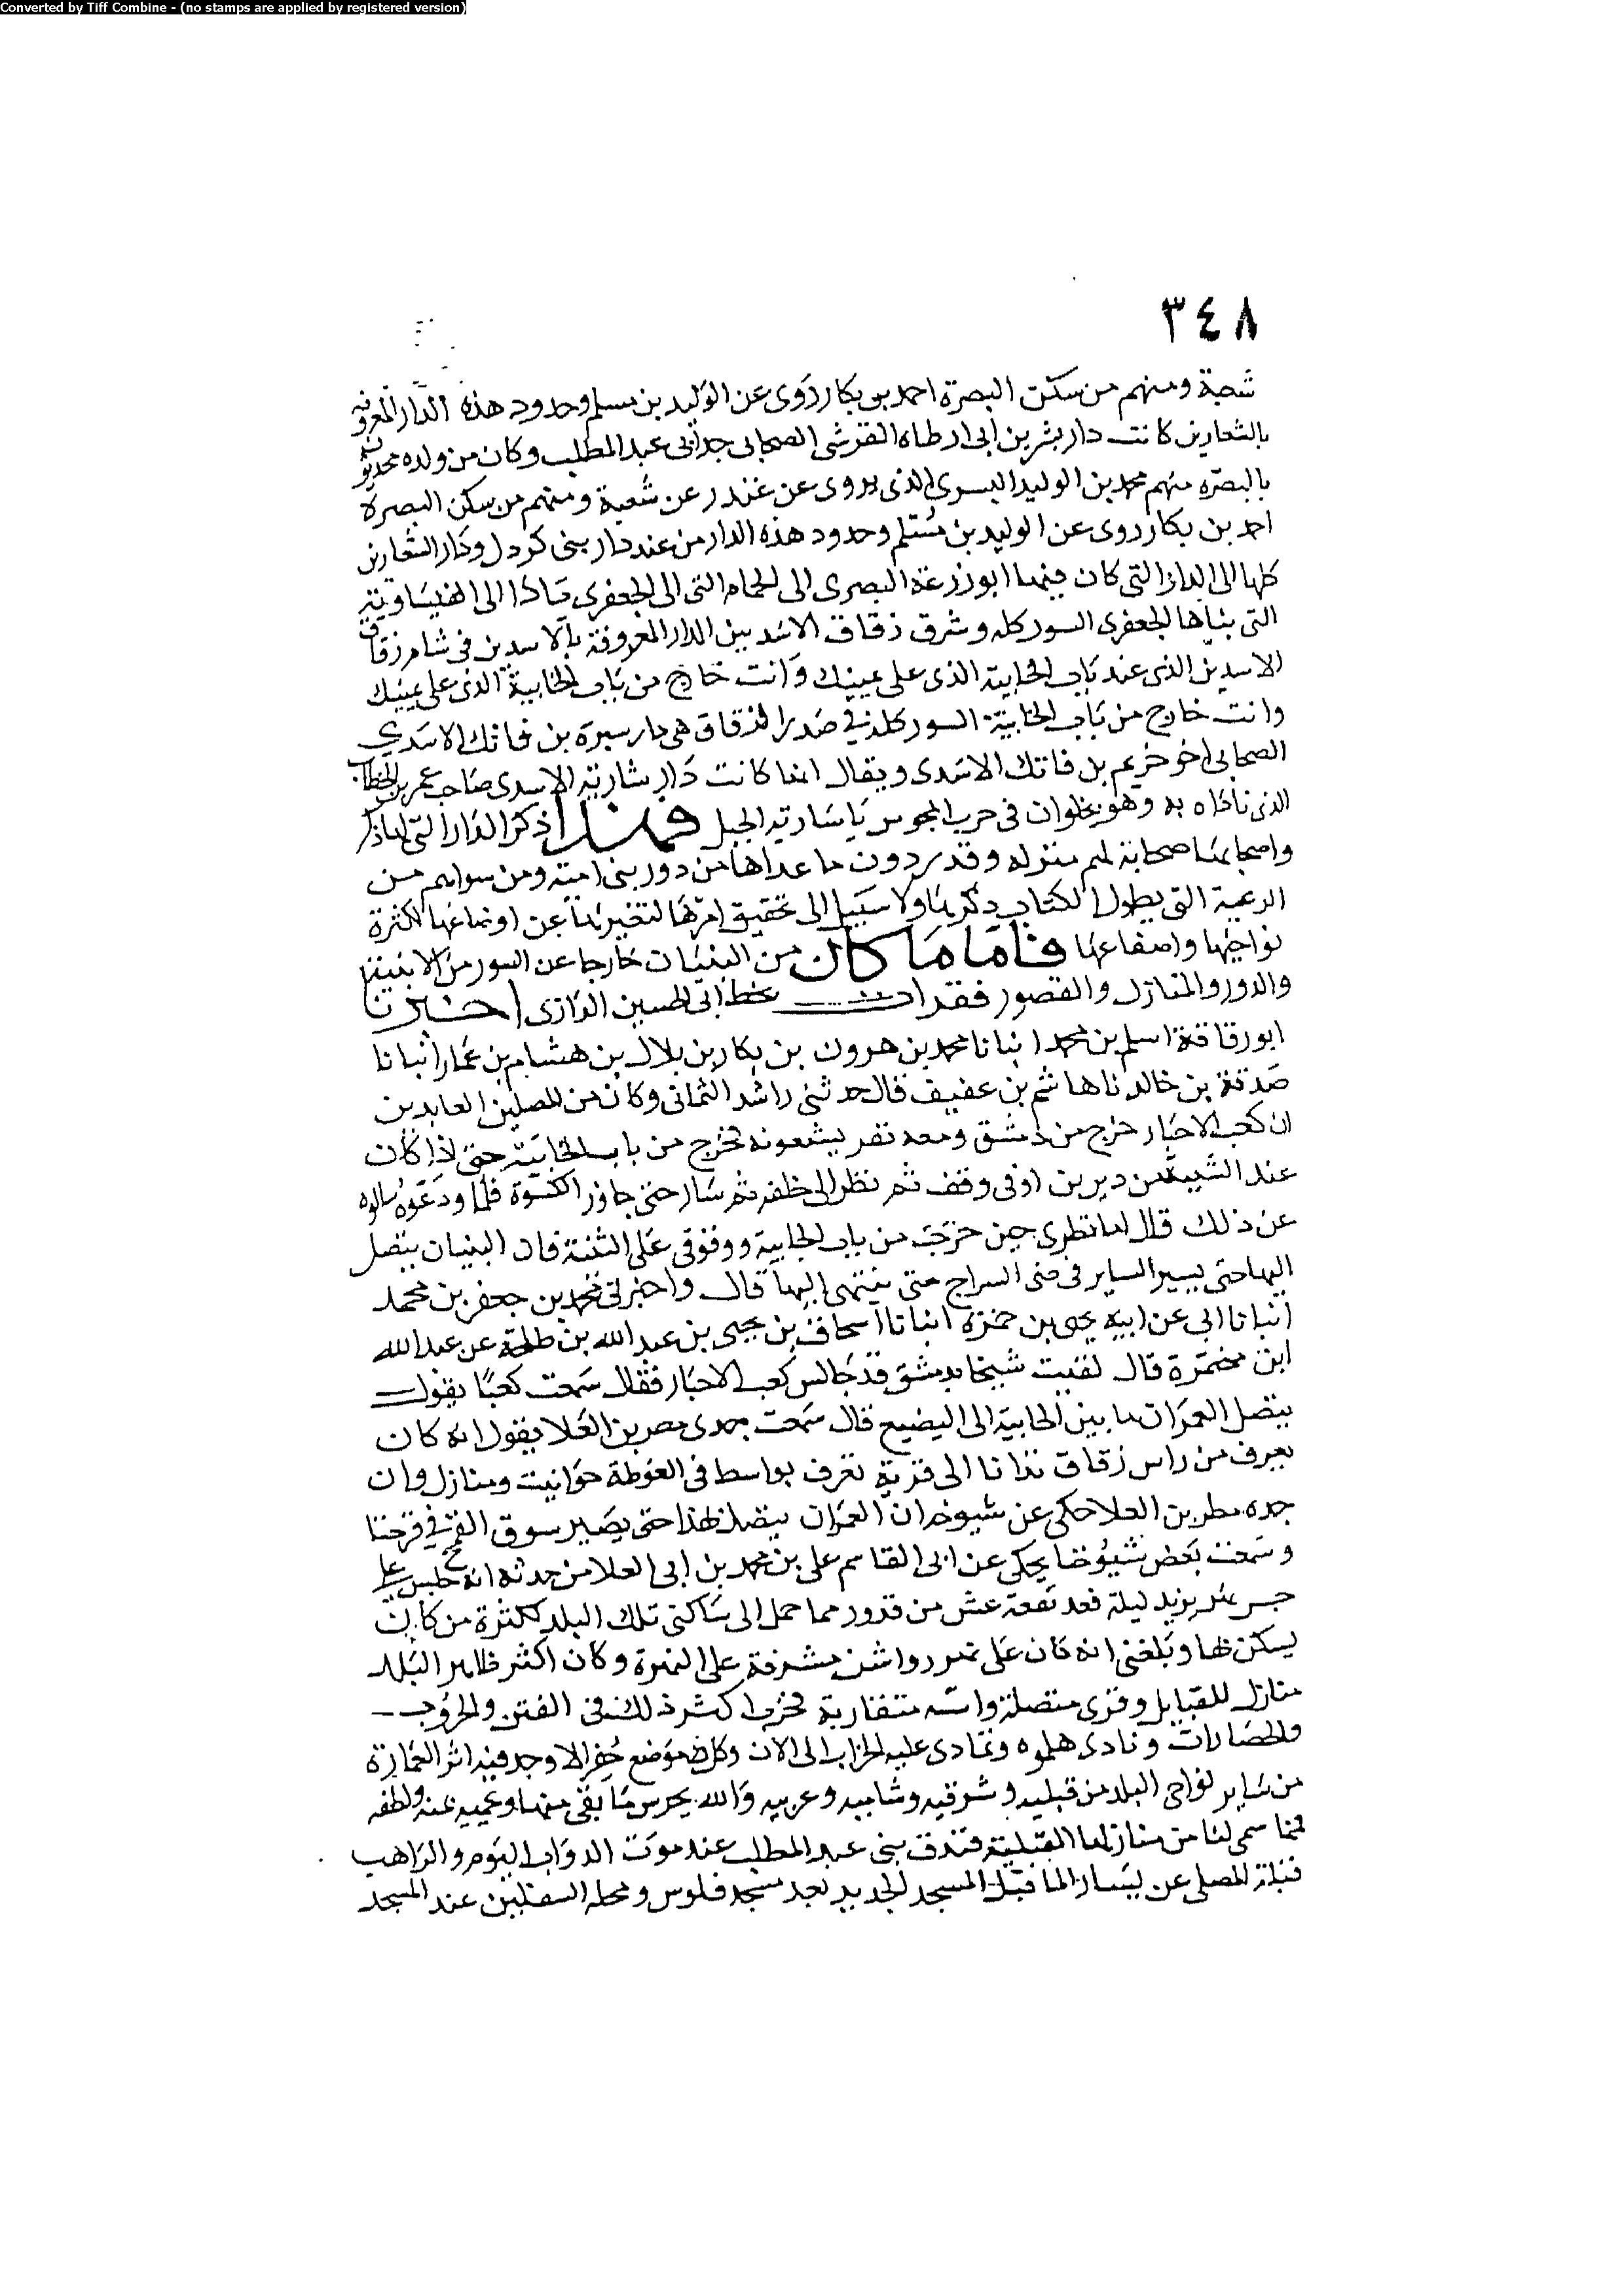 Converted by Tiff Combine - (no stamps are applied by registered version)
٣٤٨
شعبة ومنهم من سكن البصرة احمد بن بكار روى عن الوليد بن مسلم وحدود هذه الدار المعروفة
بالشعارين كانت دار بشر بن ابى ارطاه القرشى الصحابى جد ابى عبد المطلب وكان من ولده محدثون
بالبصرة منهم محمد بن الوليد البسرى الذى يروى عن غندر عن شعبة ومنهم من سكن البصرة
احمد بن بكار روى عن الوليد بن مسلم وحدود هذه الدار من عند دار بنى كردل ودار الشعارين
كلها الى الدار التى كان فيها ابو زرعة البصرى الى الحمام التى الى الجعفرى مادا الى
التى بناها الجعفرى السور كله وشرق زقاق الاسد بين الدار المعروفة بالاسديين فى شام زقاق
الاسديين الذى عند باب الجابية الذى على يمينك وانت خارج من باب الجابية الذى على يمينك
وانت خارج من باب الجابية السور كله في صدر الزقاق هى دار سبرة بن فاتك الاسدي
الصحابى اخو خريم بن فاتك الاسدى ويقال انها كانت دار سارية الاسدى صاحب عمر بن الخطاب
الذى ناداه به وهو بحلوان فى حرب المجوس يا سارية الجبل فهذا ذكر الدار التى
واصحابها صحابة لهم منزله وقدر دون ما عداها من دور بنى امية ومن سواهم من
الرعية التى يطول الكتاب بذكرها ولا سبيل الى تحقيق امرها لتغيرها عن اوضاعها لكثرة
نواحيها واصقاعها فاما ما كان من البنيان خارجا عن السور من الابنية
والدور والمنازل والقصور فقرات بخط ابى الحسين الرازى اخبرنا
ابو رقاقة اسلم بن محمد انبانا محمد بن هرون بن بكار بن بلال بن هشام بن عمار انبانا
صدقة بن خالد نا هاشم بن عفيف قال حدثنى راشد الثمانى وكان من المصلين العابدين
ان كعب الاحبار خرج من دمشق ومعه نفر يشعونه فخرج من باب الجابية حتى اذا كان
عند الثنية من دير بن اوفى وقف ثم نظر الى خلفه ثم سار حتى جاوز الكسوة فلما ودعوه سالوه
عن ذلك قال اما نظرى حين خرجت من باب الجابية ووقوفى على الثنية فان البنيان يتصل
اليها حتى يسير الساير فى ضى السراج حتى ينتهى اليها قال واخبرنى محمد بن جعفر بن محمد
انبانا ابى عن ابيه يحيى بن حمزة انبانا اسحاق بن يحيى بن عبد الله بن طلحة عن عبد الله
ابن ضمرة قال لقيت شيخا بدمشق قد جالس كعب الاحبار فقال سمعت كعبا يقول
يتصل العمران ما بين الجابية الى البضيع قال سمعت جدى مضر بن العلا يقول انه كان
يعرف من راس زقاق الى قرية تعرف بواسط فى الغوطة حوانيت ومنازل وان
جده مطر بن العلا حكى عن شيوخه ان العمران يتصل هذا حتى يصير سوق القمح في قرحتا
وسمعت بعض شيوخنا يحكى عن ابى القاسم على بن محمد بن ابى العلا من حدثه انه جلس على
جسر نهر يزيد ليلة فعد تسعة عش من قدور مما حمل الى ساكنى تلك البلد لكثرة من كان
يسكن بها وبلغنى انه كان على نهر رواشن مشرفة على النهرة وكان اكثر ظاهر البلد
منازل للقبايل وقرى متصلة متقاربة فخرب اكثر ذلك فى الفتن والحروب
والحصارات وتمادى عليه الخراب الى الان وكل موضع حفر الا وجد فيه اثر العمارة
من ساير نواحى البلد من قبليه وشرقيه وشاميه وغربيه والله يحرس ما بقى منها ويحميه بمنه ولطفه
فما سمى لنا من منازلها القبلية فندق بنى عبد المطلب عند موت الدواب اليوم والراهب
قبلة المصلى عن يسار المار قبل المسجد الجديد بعد مسجد فلوس ومحله السفليين عند المسجد